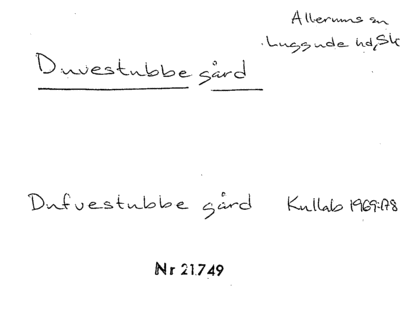 Allerums sn
Luggude hd, Sk
Duvestubbe gård
Dufvestubbe gård Kullab 1969:178
Nr 21.749